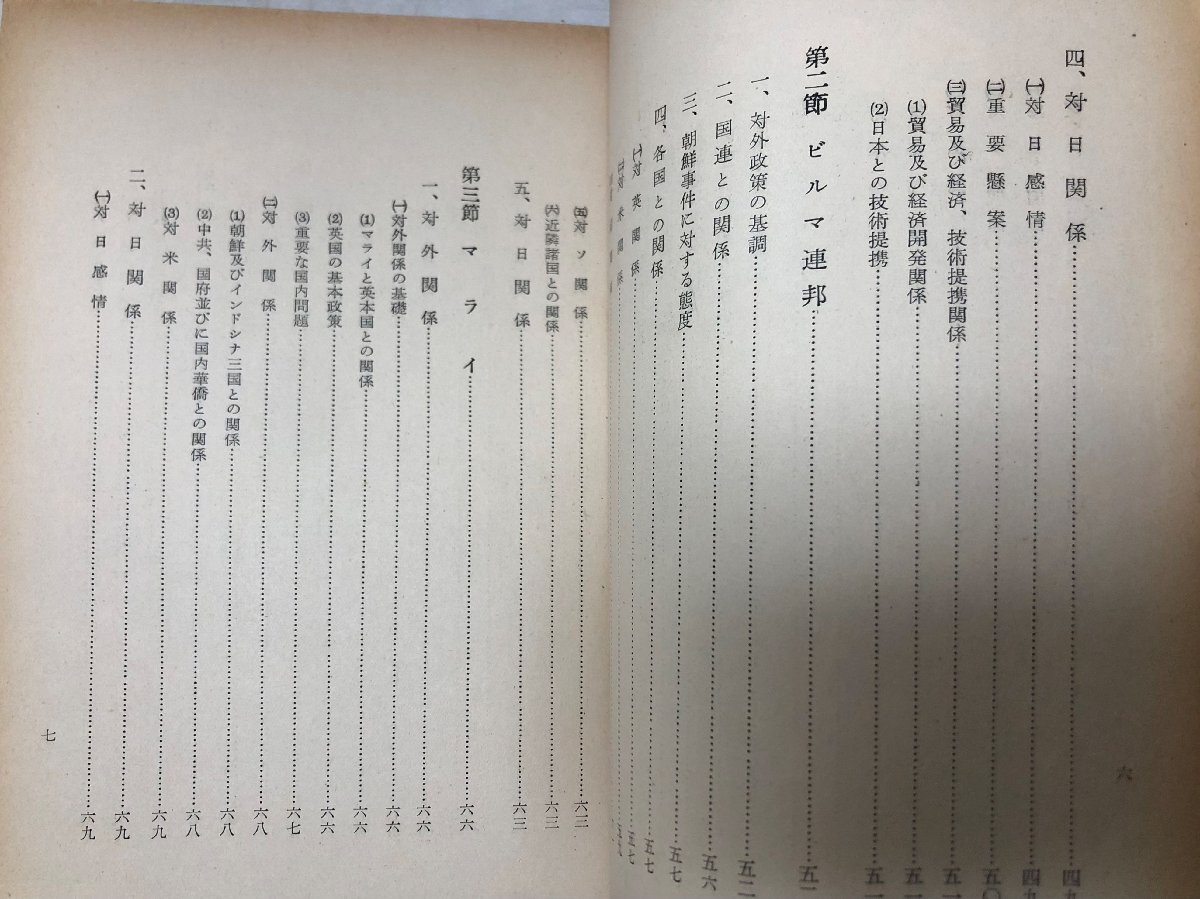 四、対日関係……四九
㈠対日感情……四九
㈡重要懸案……五〇
㈢貿易及び経済、技術提携関係……五一
⑴貿易及び経済開発関係……五一
⑵日本との技術提携……五一
第二節 ビルマ連邦……五二
一、対外政策の基調……五二
二、国連との関係……五六
三、朝鮮事件に対する態度……五七
四、各国との関係……五七
㈠対英関係……五七
㈡対米関係
㈤対ソ関係……六三
㈥近隣諸国との関係……六三
五、対日関係……六三
第三節 マライ……六六
一、対外関係……六六
㈠対外関係の基礎……六六
⑴マライと英本国との関係……六六
⑵英国の基本政策……六六
⑶重要な国内問題……六七
㈡対外関係……六八
⑴朝鮮及びインドシナ三国との関係……六八
⑵中共、国府並びに国内華僑との関係……六八
⑶対米関係……六九
二、対日関係……六九
㈠対日感情……六九
六
七